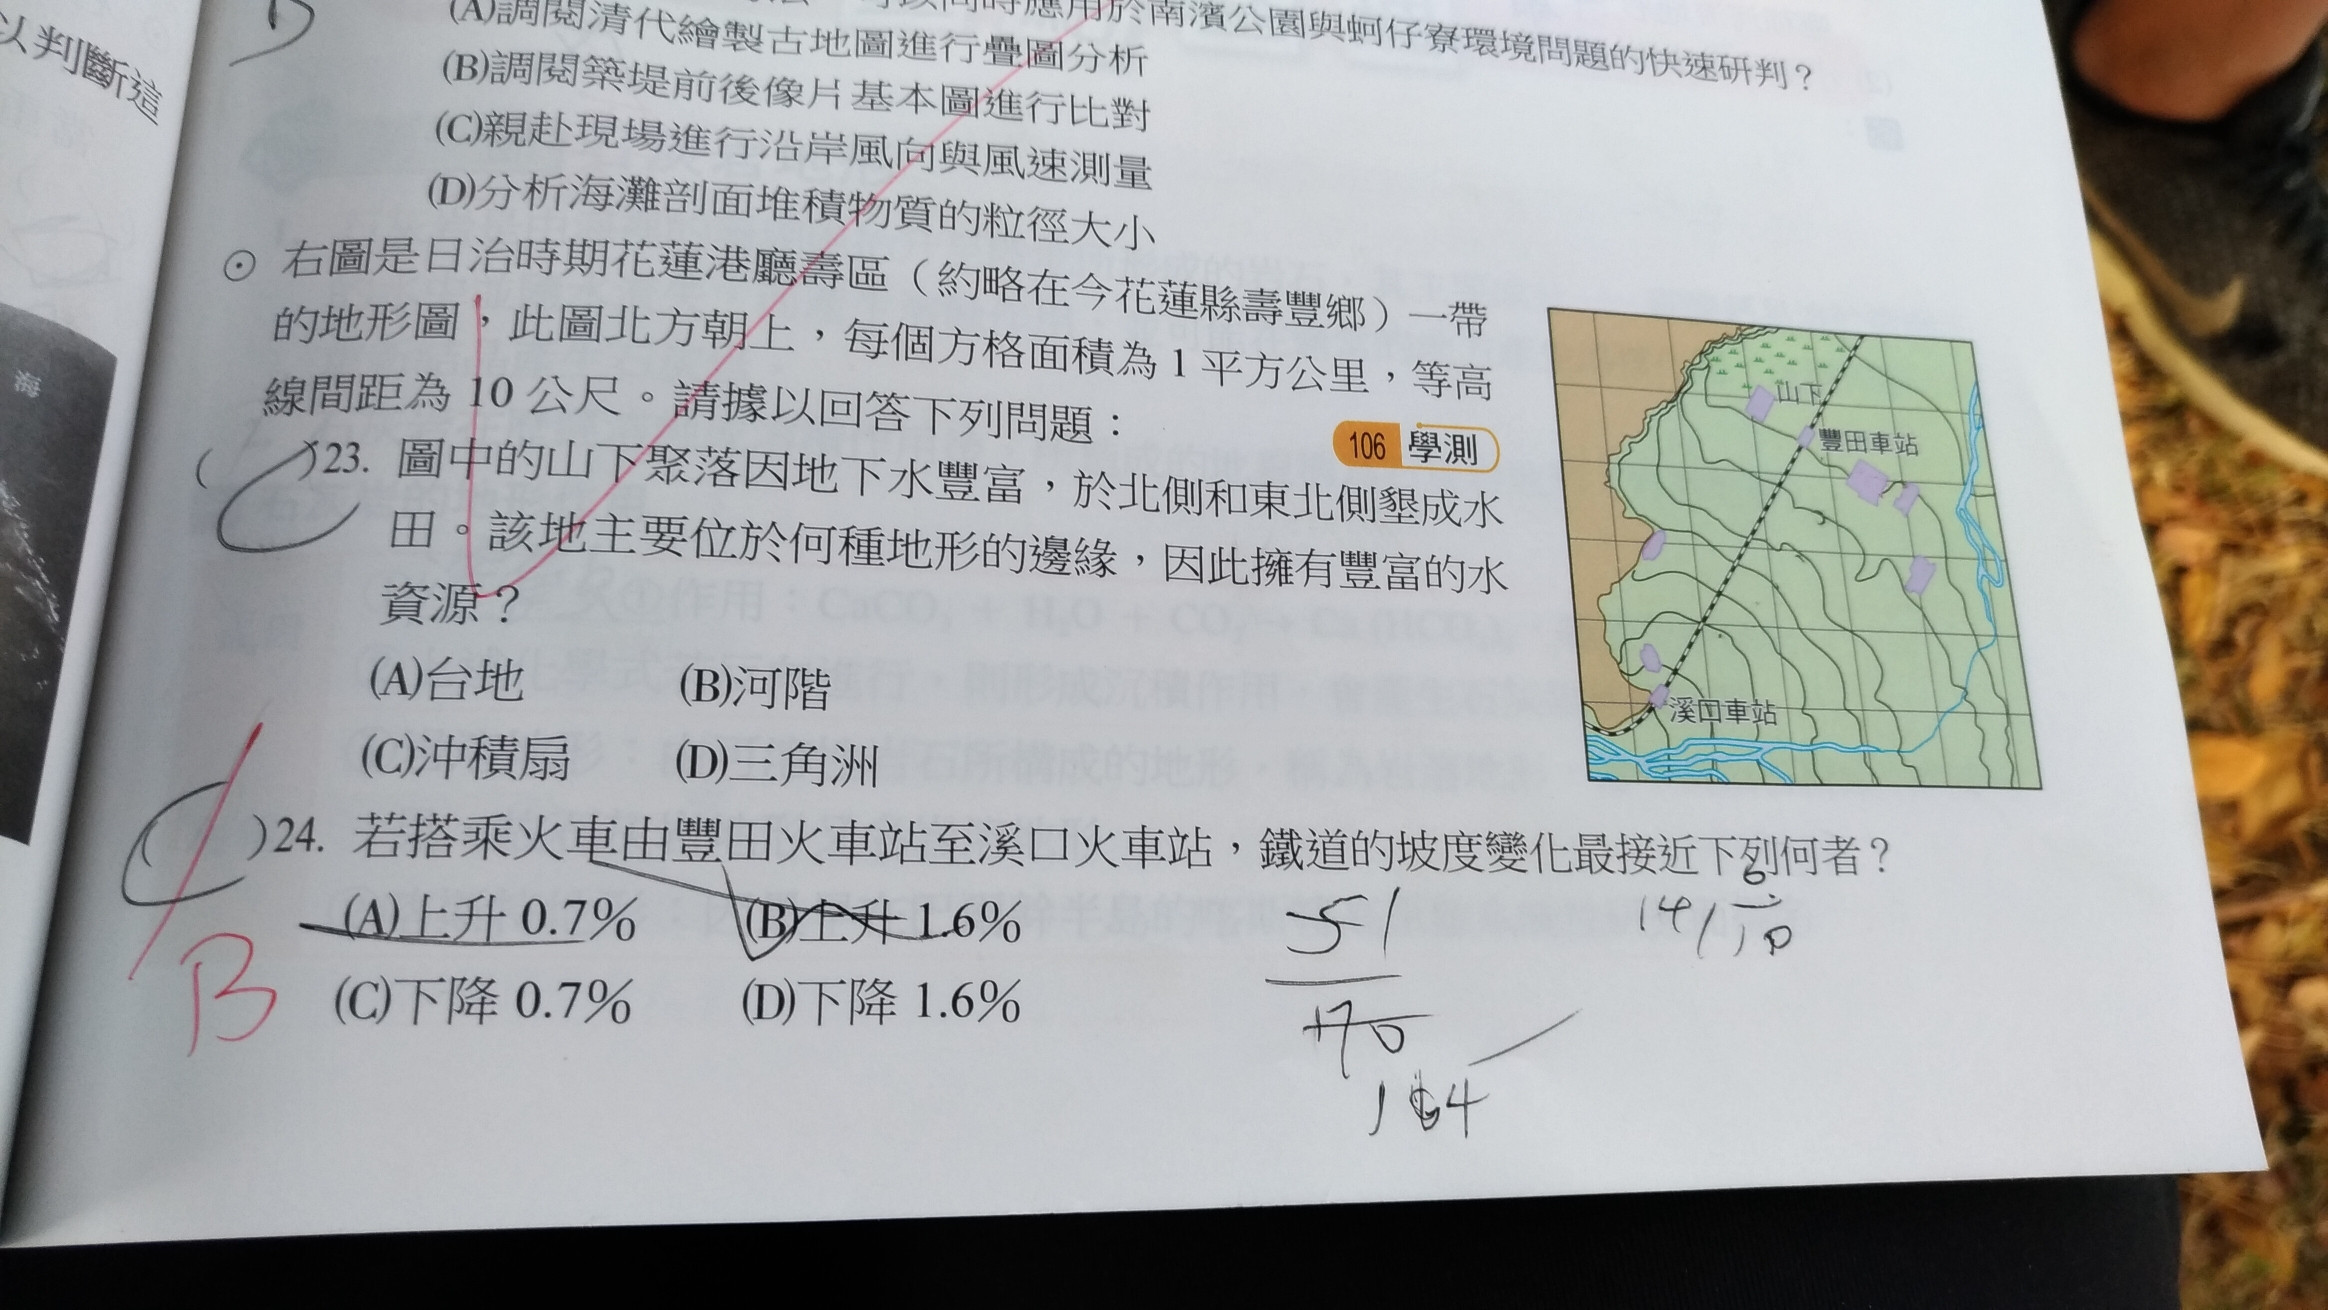 以判斷這
海
應用於南濱公園與蚵仔寮環境問題的快速研判？
(A)調閱清代繪製古地圖進行疊圖分析
(B)調閱築堤前後像片基本圖進行比對
(C)親赴現場進行沿岸風向與風速測量
(D)分析海灘剖面堆積物質的粒徑大小
⊙ 右圖是日治時期花蓮港廳壽區（約略在今花蓮縣壽豐鄉）一帶
的地形圖，此圖北方朝上，每個方格面積為 1 平方公里，等高
線間距為 10 公尺。請據以回答下列問題：
106 學測
( C )23. 圖中的山下聚落因地下水豐富，於北側和東北側墾成水
田。該地主要位於何種地形的邊緣，因此擁有豐富的水
資源？
(A)台地 (B)河階
(C)沖積扇 (D)三角洲
山下
豐田車站
溪口車站
( C )24. 若搭乘火車由豐田火車站至溪口火車站，鐵道的坡度變化最接近下列何者？
B
(A)上升 0.7% (B)上升 1.6%
(C)下降 0.7% (D)下降 1.6%